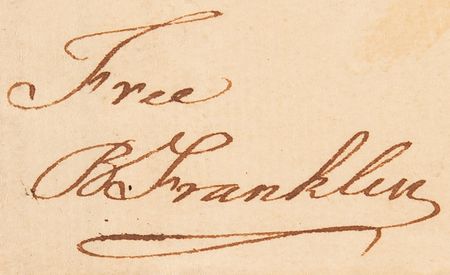 Free
B. Franklin